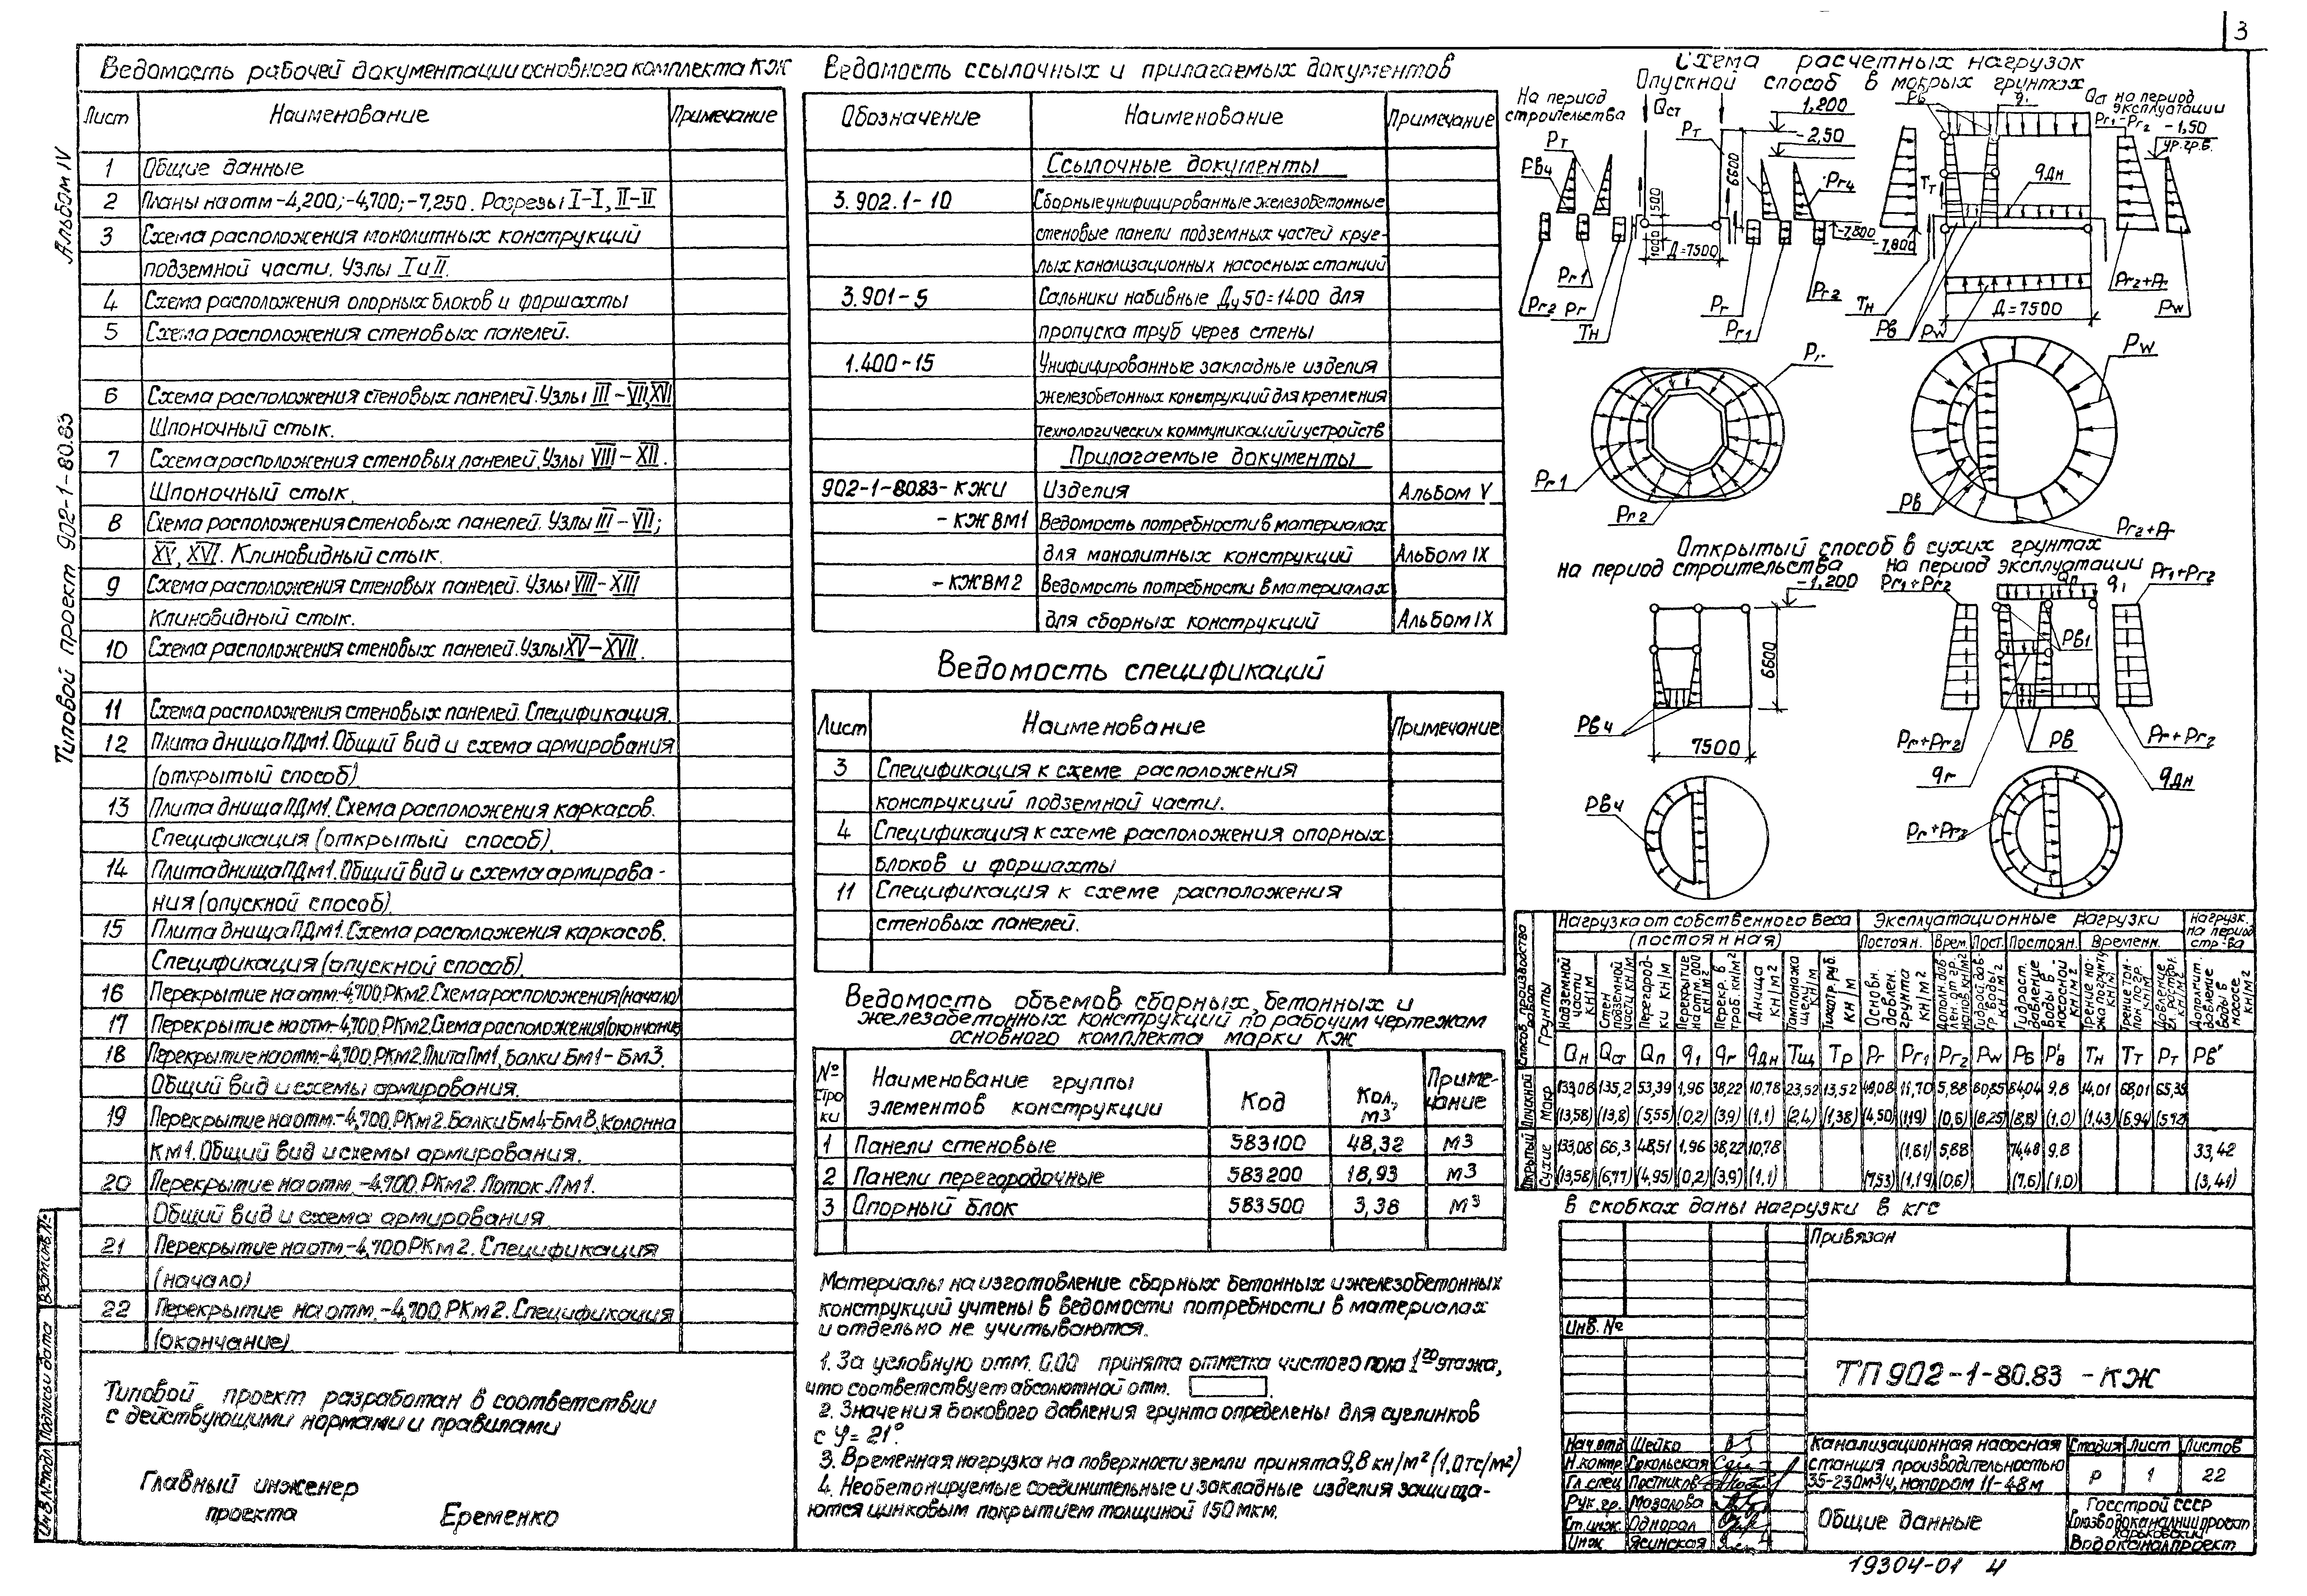 3
Альбом IV
Типовой проект 902-1-80.83
Ведомость рабочей документации основного комплекта КЖ
Лист Наименование Примечание
1 Общие данные
2 Планы на отм -4,200; -4,700; -7,250. Разрезы I-I, II-II
3 Схема расположения монолитных конструкций
подземной части. Узлы I и II.
4 Схема расположения опорных блоков и форшахты
5 Схема расположения стеновых панелей.
6 Схема расположения стеновых панелей. Узлы III-VII, XVI
Шпоночный стык.
7 Схема расположения стеновых панелей. Узлы VIII-XII.
Шпоночный стык.
8 Схема расположения стеновых панелей. Узлы III-VII;
XV, XVI. Клиновидный стык.
9 Схема расположения стеновых панелей. Узлы VIII-XIII
Клиновидный стык.
10 Схема расположения стеновых панелей. Узлы XV-XVII.
11 Схема расположения стеновых панелей. Спецификация.
12 Плита днища ПДм1. Общий вид и схема армирования
(открытый способ)
13 Плита днища ПДм1. Схема расположения каркасов.
Спецификация (открытый способ).
14 Плита днища ПДм1. Общий вид и схема армирова-
ния (опускной способ).
15 Плита днища ПДм1. Схема расположения каркасов.
Спецификация (опускной способ).
16 Перекрытие на отм.-4,700. РКм2. Схема расположения (начало)
17 Перекрытие на отм.-4,700. РКм2. Схема расположения (окончание)
18 Перекрытие на отм.-4,700. РКм2. Плита Пм1, Балки Бм1-Бм3.
Общий вид и схемы армирования.
19 Перекрытие на отм.-4,700. РКм2. Балки Бм4-Бм8, Колонна
Км1. Общий вид и схемы армирования.
20 Перекрытие на отм. -4,700. РКм2. Лоток Лм1.
Общий вид и схема армирования
21 Перекрытие на отм-4,700 РКм2. Спецификация
(начало)
22 Перекрытие на отм. -4,700. РКм2. Спецификация
(окончание)
Типовой проект разработан в соответствии
с действующими нормами и правилами
Главный инженер
проекта Еременко
Инв № подл Подпись и дата Взам инв №
Ведомость ссылочных и прилагаемых документов
Обозначение Наименование Примечание
Ссылочные документы
3.902.1-10 Сборные унифицированные железобетонные
стеновые панели подземных частей круг-
лых канализационных насосных станций
3.901-5 Сальники набивные Ду 50=1400 для
пропуска труб через стены
1.400-15 Унифицированные закладные изделия
железобетонных конструкций для крепления
технологических коммуникаций и устройств
Прилагаемые документы
902-1-80.83-КЖИ Изделия Альбом V
-КЖ ВМ1 Ведомость потребности в материалах
для монолитных конструкций Альбом IX
-КЖВМ2 Ведомость потребности в материалах
для сборных конструкций Альбом IX
Ведомость спецификаций
Лист Наименование Примечание
3 Спецификация к схеме расположения
конструкций подземной части.
4 Спецификация к схеме расположения опорных
блоков и форшахты
11 Спецификация к схеме расположения
стеновых панелей.
Ведомость объемов сборных, бетонных и
железобетонных конструкций по рабочим чертежам
основного комплекта марки КЖ
№ строки Наименование группы элементов конструкции Код Кол., м3 Примечание
1 Панели стеновые 583100 48,32 м3
2 Панели перегородочные 583200 18,93 м3
3 Опорный блок 583500 3,38 м3
Материалы на изготовление сборных бетонных и железобетонных
конструкций учтены в ведомости потребности в материалах
и отдельно не учитываются.
1. За условную отм. 0.00 принята отметка чистого пола 1го этажа,
что соответствует абсолютной отм.
2. Значения бокового давления грунта определены для суглинков
с φ= 21°.
3. Временная нагрузка на поверхности земли принята 9,8 кн/м² (1,0тс/м²)
4. Необетонируемые соединительные и закладные изделия защища-
ются цинковым покрытием толщиной 150 мкм.
Схема расчетных нагрузок
Опускной способ в мокрых грунтах
На период
строительства
Qст
на период
эксплуатации
1,200
-2,50
-1,50
ур.гр.в.
Рт
Рв4
6600
500
1000
Д=7500
-7,800
-7,800
Рг1
Рг2 Рг
Тн
Рг
Рг1
Рг2
Рг4
Тт
qдн
Рв
Рw
Д=7500
Рw
Рг
Рw
Рг1
Рг2
Рв
Открытый способ в сухих грунтах
на период строительства
на период эксплуатации
-1,200
Рг1+Рг2
Qп
q1
Рг1+Рг2
6600
Рв4
7500
Рв1
Рг+Рг2
Рв
Рг+Рг2
qг
qдн
Рв4
Рг+Рг2
Способ производства работ Грунты Нагрузка от собственного веса (постоянная) Эксплуатационные нагрузки Нагрузк. на период стр-ва
Постоян. Врем. Пост. Постоян. Временн.
Надземной части кн/м Стен подземной части кн/м Перегородки кн/м
Qн Qст Qп q1 qг qдн Тщ Тр Рг Рг1 Рг2 Рw Рв Р'в Тн Тт Рт Рв"
Опускной Мокр 133,08 135,2 53,39 1,96 38,22 10,78 23,52 13,52 49,08 11,70 5,88 80,85 84,04 9.8 14,01 68,01 65,39
(13,58) (13,8) (5,55) (0,2) (3,9) (1,1) (2,4) (1,38) (4,50) (1,19) (0,6) (8,25) (8,8) (1,0) (1,43) (6,94)
Открытый Сухие 133,08 66,3 48,51 1,96 38,22 10,78 (1,61) 5,88 74,48 9.8 33,42
(13,58) (6,77) (4,95) (0,2) (3,9) (1,1) (7,53) (1,19) (0,6) (7,6) (1,0) (3,41)
В скобках даны нагрузки в кгс
Привязан
Инв. №
ТП 902-1-80.83 -КЖ
Нач отд Шейко
Н.контр. Сокольская
Гл.спец Постников
Рук.гр. Мозалова
Ст.инж. Однорал
Инж Ясинская
Канализационная насосная
станция производительностью
35-230м³/ч, напором 11-48 м
Стадия Лист Листов
Р 1 22
Общие данные
Госстрой СССР
Союзводоканалниипроект
Харьковский
Водоканалпроект
19304-01 4